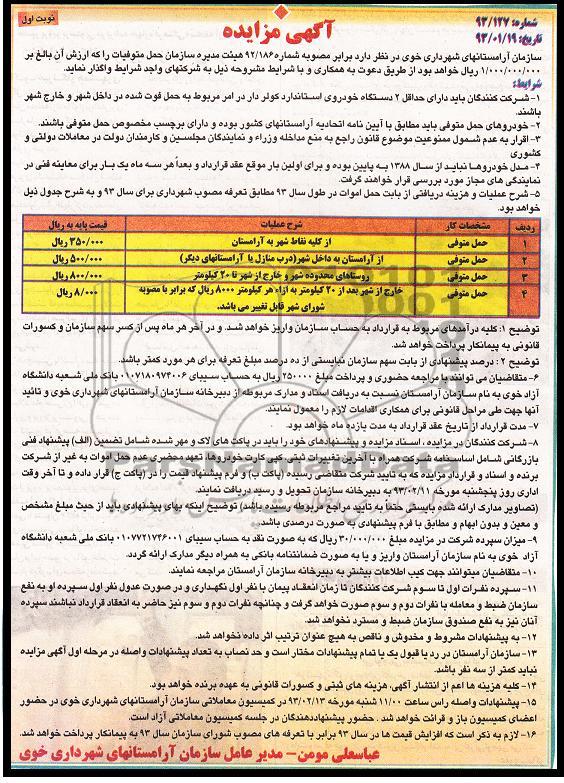 نوبت اول
آگهی مزایده
شماره: ۹۳/۱۲۷
تاریخ: ۹۳/۰۱/۱۹
سازمان آرامستانهای شهرداری خوی در نظر دارد برابر مصوبه شماره ۹۲/۱۸۶ هیئت مدیره سازمان حمل متوفیات را که ارزش آن بالغ بر
۱/۰۰۰/۰۰۰/۰۰۰ ریال خواهد بود از طریق دعوت به همکاری و با شرایط مشروحه ذیل به شرکتهای واجد شرایط واگذار نماید.
شرایط:
۱- شرکت کنندگان باید دارای حداقل ۲ دستگاه خودروی استاندارد کولر دار در امر مربوط به حمل فوت شده در داخل شهر و خارج شهر
باشند.
۲- خودروهای حمل متوفی باید مطابق با آیین نامه اتحادیه آرامستانهای کشور بوده و دارای برچسب مخصوص حمل متوفی باشند.
۳- اقرار به عدم شمول ممنوعیت موضوع قانون راجع به منع مداخله وزراء و نمایندگان مجلسین و کارمندان دولت در معاملات دولتی و
کشوری
۴- مدل خودروها نباید از سال ۱۳۸۸ به پایین بوده و برای اولین بار موقع عقد قرارداد و بعداً هر سه ماه یک بار برای معاینه فنی در
نمایندگی های مجاز مورد بررسی قرار خواهند گرفت.
۵- شرح عملیات و هزینه دریافتی از بابت حمل اموات در طول سال ۹۳ مطابق تعرفه مصوب شهرداری برای سال ۹۳ و به شرح جدول ذیل
خواهد بود.
ردیف مشخصات کار شرح عملیات قیمت پایه به ریال
۱ حمل متوفی از کلیه نقاط شهر به آرامستان ۳۵۰/۰۰۰ ریال
۲ حمل متوفی از آرامستان به داخل شهر(درب منازل یا آرامستانهای دیگر) ۵۰۰/۰۰۰ ریال
۳ حمل متوفی روستاهای محدوده شهر و خارج از شهر تا ۲۰ کیلومتر ۸۰۰/۰۰۰ ریال
۴ حمل متوفی خارج از شهر بعد از ۲۰ کیلومتر به ازاء هر کیلومتر ۸۰۰۰ ریال که برابر با مصوبه ۸/۰۰۰ ریال
شورای شهر قابل تغییر می باشد.
توضیح ۱: کلیه درآمدهای مربوط به قرارداد به حساب سازمان واریز خواهد شد. و در آخر هر ماه پس از کسر سهم سازمان و کسورات
قانونی به پیمانکار پرداخت خواهد شد.
توضیح ۲: درصد پیشنهادی از بابت سهم سازمان نبایستی از ده درصد مبلغ تعرفه برای هر مورد کمتر باشد.
۶- متقاضیان می توانند با مراجعه حضوری و پرداخت مبلغ ۲۵۰۰۰۰ ریال به حساب سیبای ۰۱۰۷۱۸۰۹۷۳۰۰۶ بانک ملی شعبه دانشگاه
آزاد خوی به نام سازمان آرامستان نسبت به دریافت اسناد و مدارک مربوطه از دبیرخانه سازمان آرامستانهای شهرداری خوی و تائید
آنها جهت طی مراحل قانونی برای همکاری اقدامات لازم را معمول نمایند.
۷- مدت قرارداد از تاریخ عقد قرارداد به مدت یازده ماه خواهد بود.
۸- شرکت کنندگان در مزایده ، اسناد مزایده و پیشنهادهای خود را باید در پاکت های لاک و مهر شده شامل تضمین (الف) پیشنهاد فنی
بازرگانی شامل اساسنامه شرکت همراه با آخرین تغییرات ثبتی کپی کارت خودروها، تعهد محضری عدم حمل اموات به غیر از شرکت
برنده و اسناد و قرارداد مزایده که به تایید شرکت متقاضی رسیده (پاکت ب) و فرم پیشنهاد قیمت را در (پاکت ج) قرار داده و تا آخر وقت
اداری روز پنجشنبه مورخه ۹۳/۰۲/۱۱ به دبیرخانه سازمان تحویل و رسید دریافت نمایند.
(تصاویر مدارک ارائه شده بایستی حتما به تأیید مراجع مربوطه رسیده باشد) توضیح اینکه بهای پیشنهادی باید از حیث مبلغ مشخص
و معین و بدون ابهام و مطابق با فرم پیشنهادی به صورت درصدی باشد.
۹- میزان سپرده شرکت در مزایده مبلغ ۳۰/۰۰۰/۰۰۰ ریال که به صورت نقد به حساب سیبای ۰۱۰۷۷۲۱۷۴۶۰۰۱ بانک ملی شعبه دانشگاه
آزاد خوی به نام سازمان آرامستان واریز و یا به صورت ضمانتنامه بانکی به همراه دیگر مدارک ارائه گردد.
۱۰- متقاضیان میتوانند جهت کسب اطلاعات بیشتر به دبیرخانه سازمان آرامستان مراجعه نمایند.
۱۱- سپرده نفرات اول تا سوم شرکت کنندگان تا زمان انعقاد پیمان با نفر اول نگهداری و در صورت عدول نفر اول سپرده او به نفع
سازمان ضبط و معامله با نفرات دوم و سوم صورت خواهد گرفت و چنانچه نفرات دوم و سوم نیز حاضر به انعقاد قرارداد نباشند سپرده
آنان نیز به نفع صندوق سازمان ضبط و مسترد نخواهد شد.
۱۲- به پیشنهادات مشروط و مخدوش و ناقص به هیچ عنوان ترتیب اثر داده نخواهد شد.
۱۳- سازمان آرامستان در رد یا قبول یک یا تمام پیشنهادات مختار است و حد نصاب به تعداد پیشنهادات واصله در مرحله اول آگهی مزایده
نباید کمتر از سه نفر باشد.
۱۴- کلیه هزینه ها اعم از انتشار آگهی، هزینه های ثبتی و کسورات قانونی به عهده برنده خواهد بود.
۱۵- پیشنهادات واصله راس ساعت ۱۱/۰۰ شنبه مورخه ۹۳/۰۲/۱۳ در کمیسیون معاملاتی سازمان آرامستانهای شهرداری خوی در حضور
اعضای کمیسیون باز و قرائت خواهد شد. حضور پیشنهاددهندگان در جلسه کمیسیون معاملاتی آزاد است.
۱۶- لازم به ذکر است که افزایش قیمت ها در سال ۹۳ برابر تعرفه های مصوب شورای سازمان سال ۹۳ به پیمانکار پرداخت خواهد شد.
عباسعلی مومن- مدیر عامل سازمان آرامستانهای شهرداری خوی